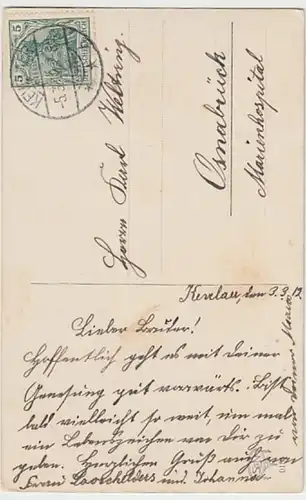 5 5
Herrn Karl Weltring
Osnabrück
Marienhospital
den 3.3.12
Lieber Bruder!
Hoffentlich geht es mit deiner
Genesung gut vorwärts. Bist
bald vielleicht so weit, um mal
ein Lebenszeichen von Dir zu
geben. Herzlichen Gruß auch von
Frau und Johanna
deiner Maria